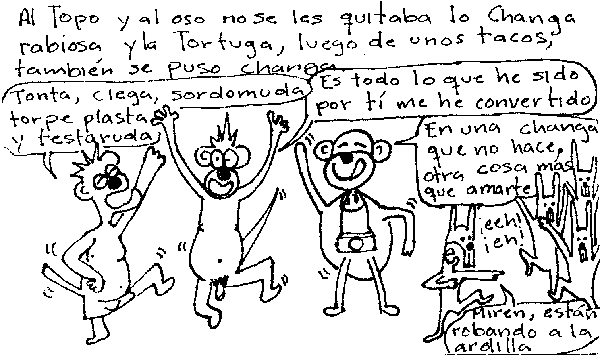 Al Topo y al oso no se les quitaba lo Changa
rabiosa y la Tortuga, luego de unos tacos,
también se puso changa
Tonta, ciega, sordomuda
torpe plasta
y testaruda
Es todo lo que he sido
por tí me he convertido
En una changa
que no hace
otra cosa más
que amarte
¡eeh!
¡eh!
Miren, están
robando a la
ardilla